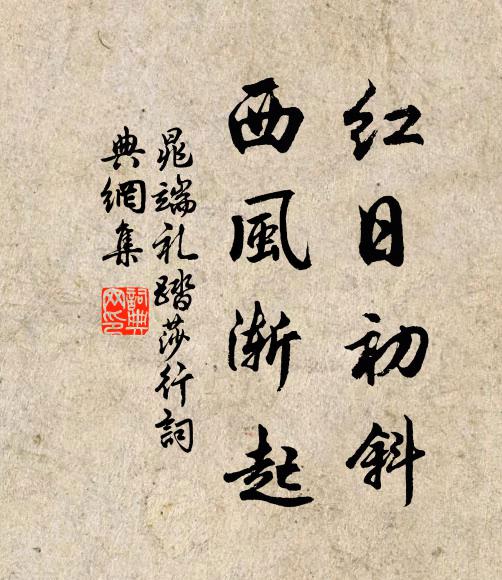 红日初斜
西風漸起
晁端礼踏莎行詞
典網集
詞典網印